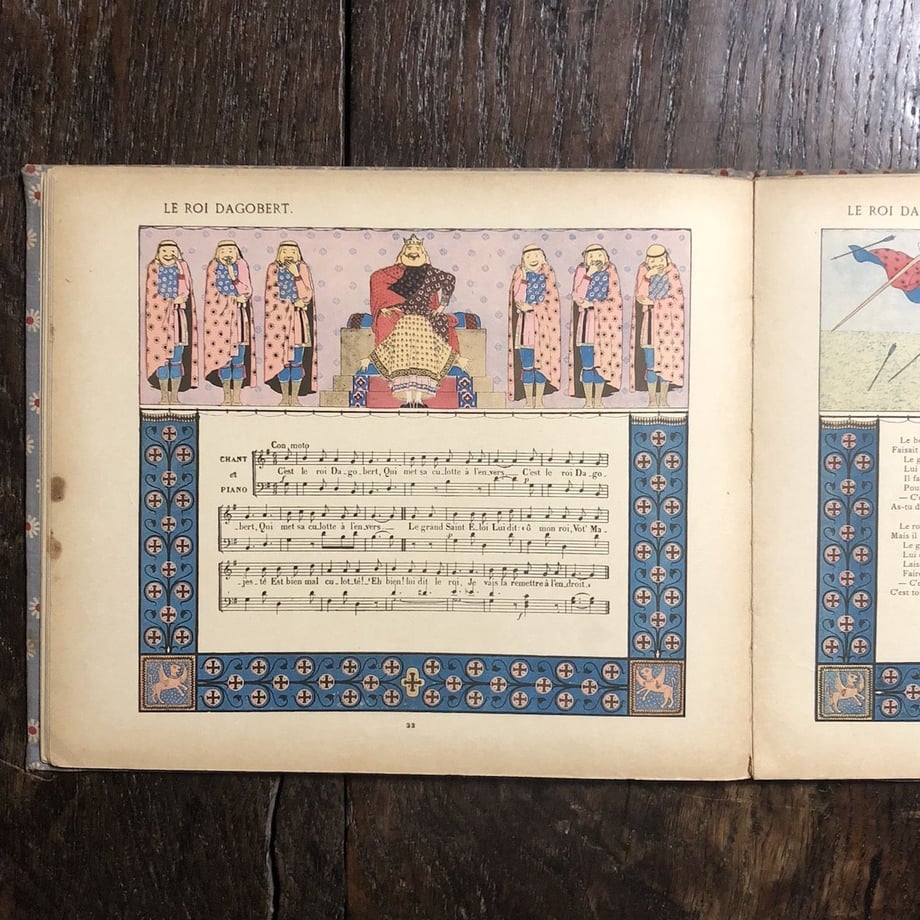 LE ROI DAGOBERT.
Con moto
CHANT
et
PIANO
C'est le roi Da_go_bert, Qui met sa cu_lotte à l'en_vers__ C'est le roi Da_go_
f
p
_bert, Qui met sa cu_lotte à l'en_vers__ Le grand Saint E_loi Lui dit: ô mon roi, Vot' Ma_
_jes_té Est bien mal cu_lot_té!_"Eh bien! lui dit le roi, Je vais la remettre à l'en_droit.,
f
33
LE ROI DA
Le
Faisait
Le
Lui
Il
Pou
— C'
As-tu d
Le ro
Mais il
Le
Lui
Lais
Fair
— C'
C'est to